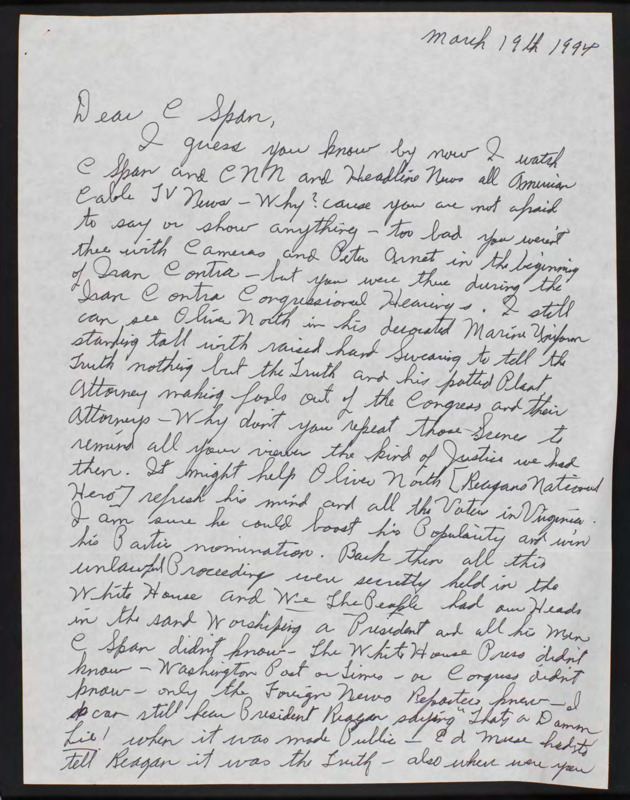 March 19th 1994
Dear C Span,
I guess you know by now I watch
C Span and CNN and Headline News all American
Cable TV News - Why? cause you are not afraid
to say or show anything - too bad you weren't
thee with Cameras and Peter Arnet in the beginning
of Iran Contra - but you were thue during the
Iran Contra Congressional Hearings. I still
can see Oliver North in his decorated Marine Uniform
standing tall with raised hand Swearing to tell the
Truth nothing but the Truth and his potted Plant
Attorney making fools out of the Congress and their
Attorneys - Why don't you repeat those Scenes to
remind all your viewer the kind of Justice we had
then. It might help Oliver North [Reagans National
Hero"] refresh his mind and all the Voter in Virginia.
I am sure he could boost his Popularity and win
his Partie nomination. Back then all this
unlawful Proceeding were secretly held in the
White House and We The People had our Heads
in the sand Worshiping a President and all his Men
C Span didn't know - The White House Press didn't
know - Washington Post or Times - or Congress didn't
know - only the Foreign News Reporters knew - I
can still hear President Reagan saying "That's a Damm
Lie! when it was made Public - Ed Muse had to
tell Reagan it was the Truth - also where were you